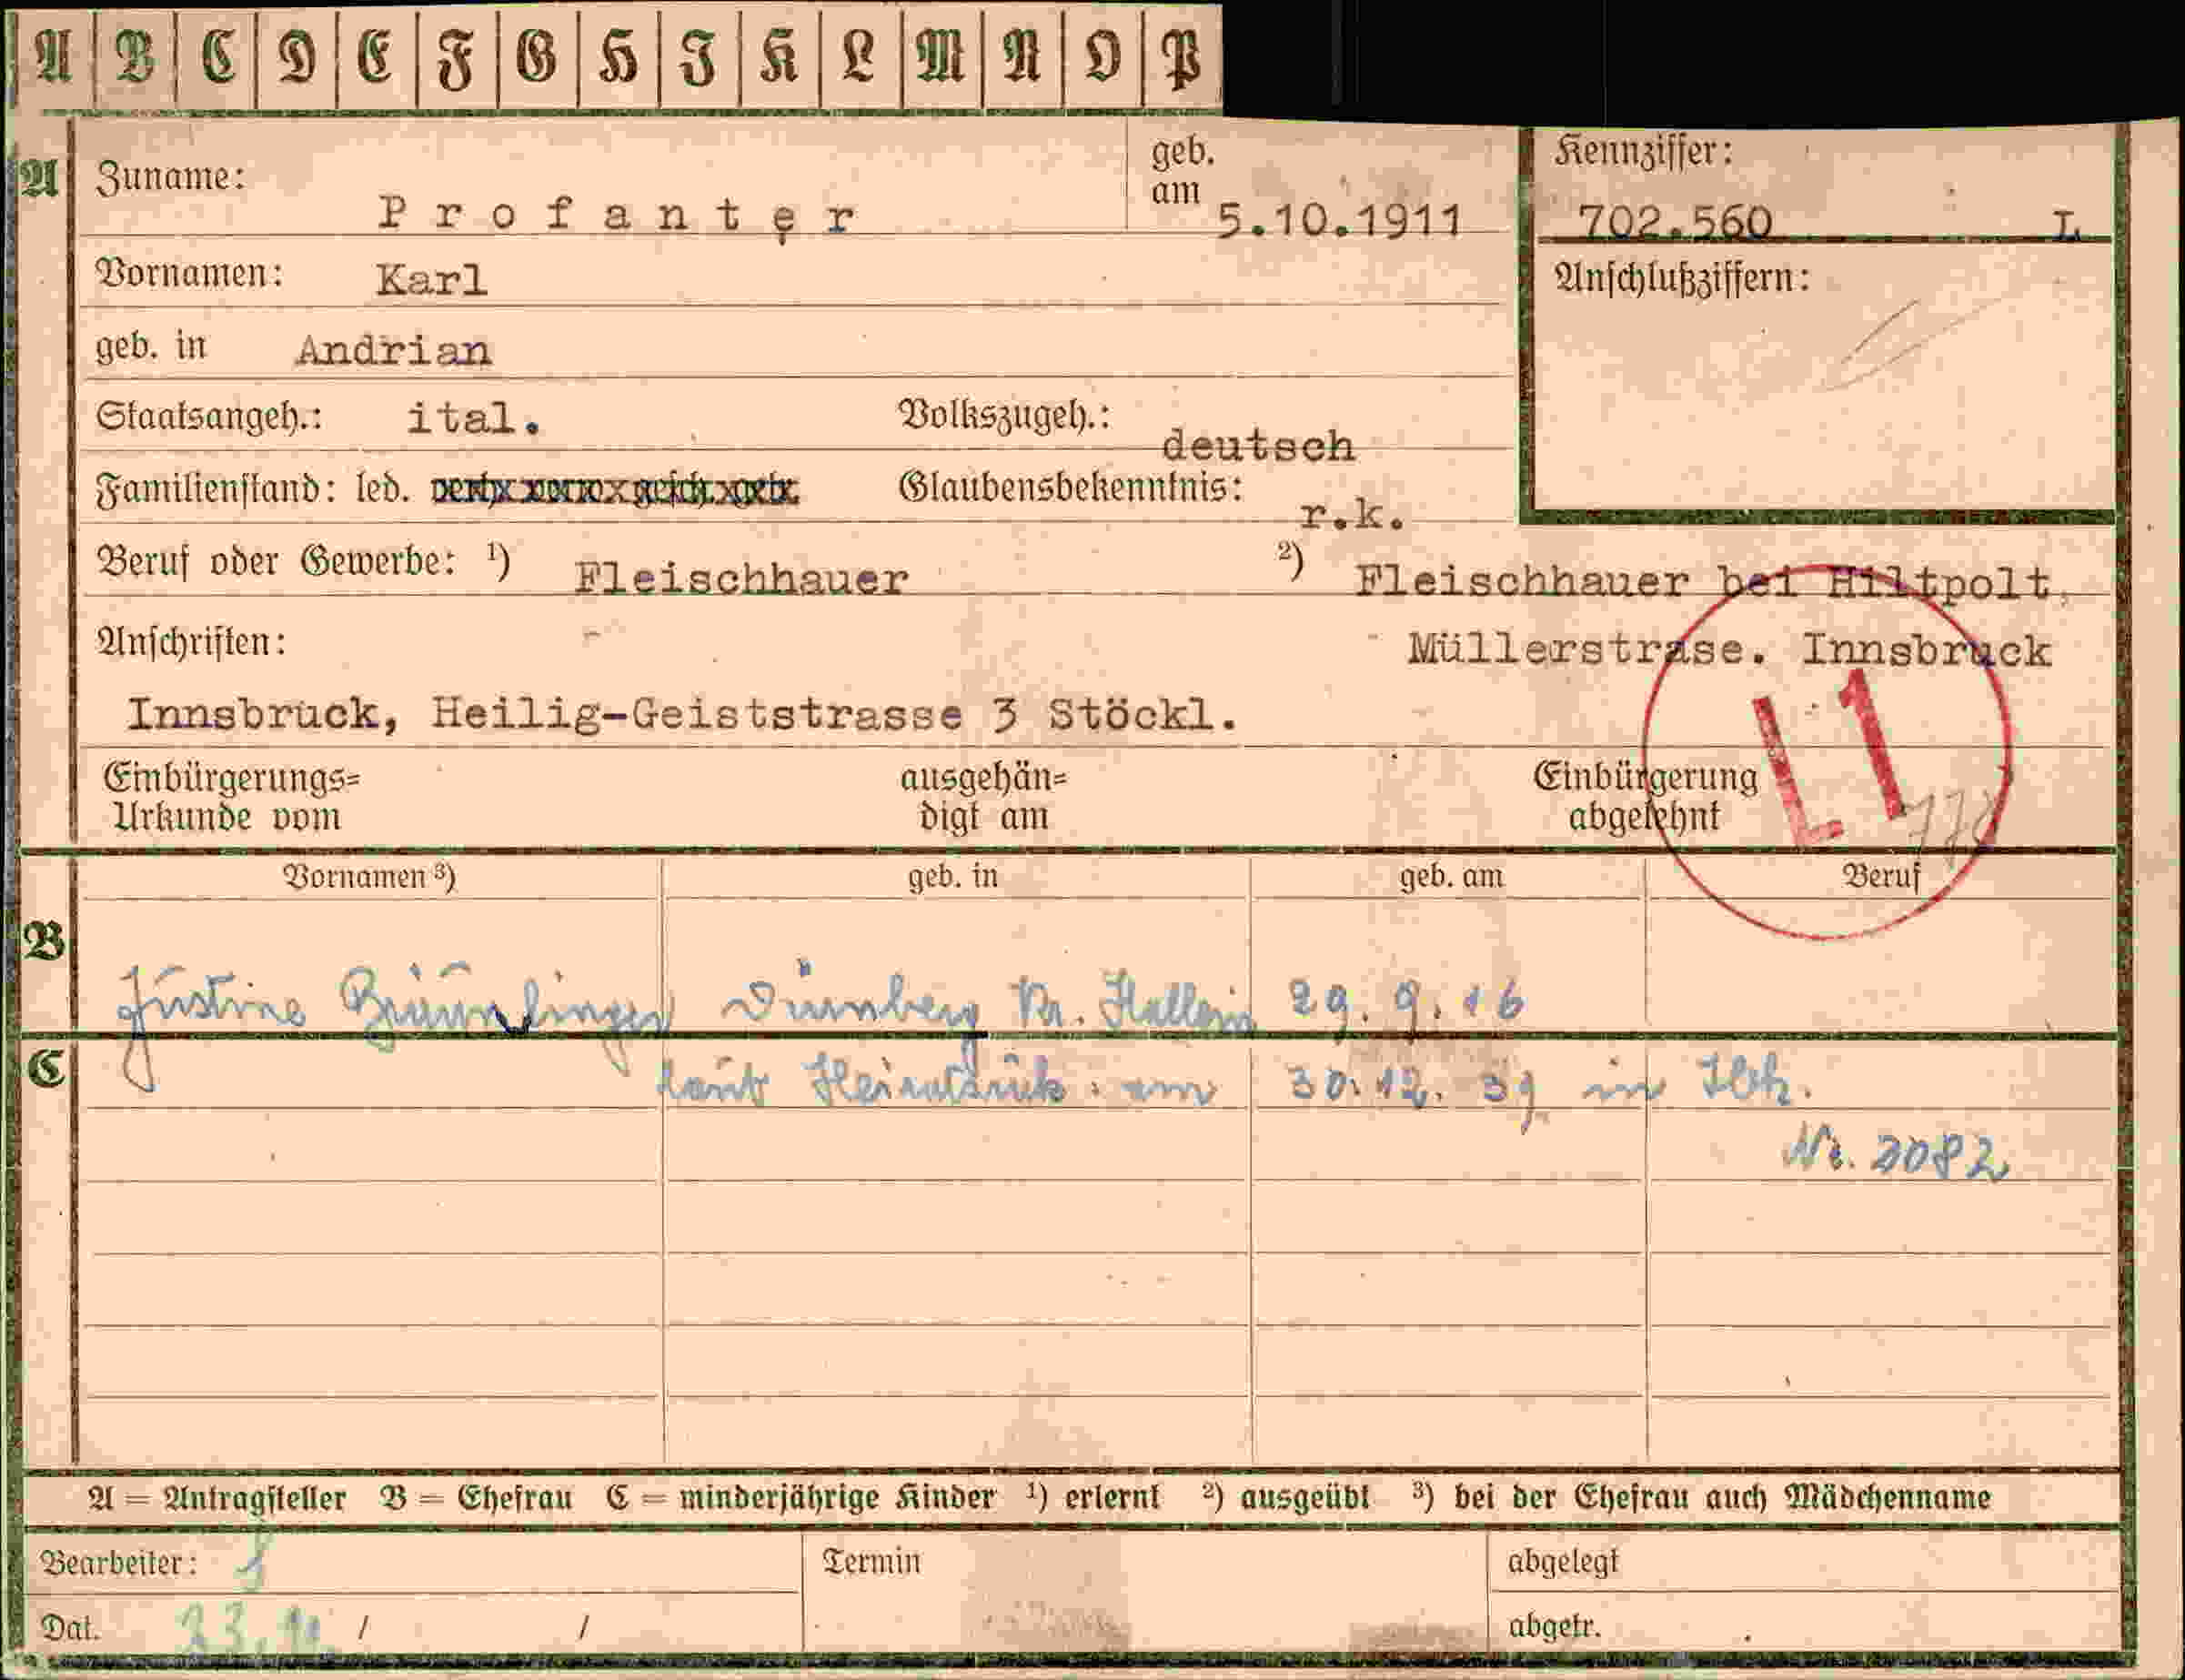 A B C D E F G H I K L M N O P
A Zuname: Profanter geb. am 5.10.1911 Kennziffer: 702.560 L
Vornamen: Karl Anschlußziffern:
geb. in Andrian
Staatsangeh.: ital. Volkszugeh.: deutsch
Familienstand: led. Glaubensbekenntnis: r.k.
Beruf oder Gewerbe: 1) Fleischhauer 2) Fleischhauer bei Hiltpolt,
Anschriften: Müllerstrase. Innsbruck
Innsbruck, Heilig-Geiststrasse 3 Stöckl.
L1
Einbürgerungs= ausgehän= Einbürgerung
Urkunde vom digt am abgelehnt
Vornamen 3) geb. in geb. am Beruf
B
Justine Bräunlinger Dürnberg Kr. Hallein 29. 9. 16
C laut Heiratsurk. am 30.12.39 in Ibk.
Nr. 2082
A = Antragsteller B = Ehefrau C = minderjährige Kinder 1) erlernt 2) ausgeübt 3) bei der Ehefrau auch Mädchenname
Bearbeiter: Termin abgelegt
Dat. / / abgetr.